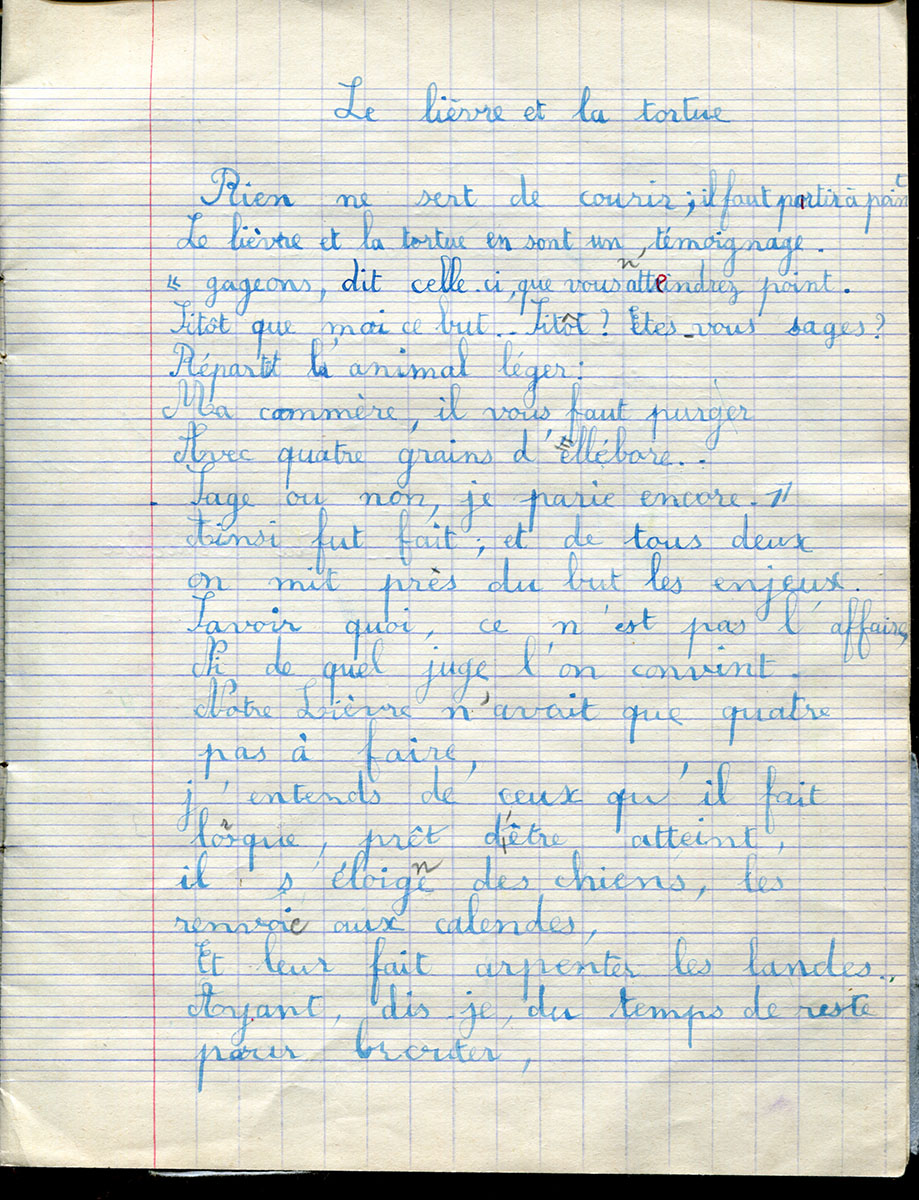 Le lièvre et la tortue
Rien ne sert de courir; il faut partir à point
Le lièvre et la tortue en sont un témoignage.
" gageons, dit celle-ci, que vous n'atteindrez point.
Sitôt que moi ce but.. Sitôt? Êtes-vous sages?
Répartit l'animal léger:
Ma commère, il vous faut purger
Avec quatre grains d'ellébore..
- Sage ou non, je parie encore. "
Ainsi fut fait; et de tous deux
on mit près du but les enjeux.
Savoir quoi, ce n'est pas l'affaire,
Ni de quel juge l'on convint.
Notre Lièvre n'avait que quatre
pas à faire,
j'entends de ceux qu'il fait
lorsque, prêt d'être atteint,
il s'éloigne des chiens, les
renvoie aux calendes,
Et leur fait arpenter les landes..
Ayant, dis-je, du temps de reste
pour brouter,